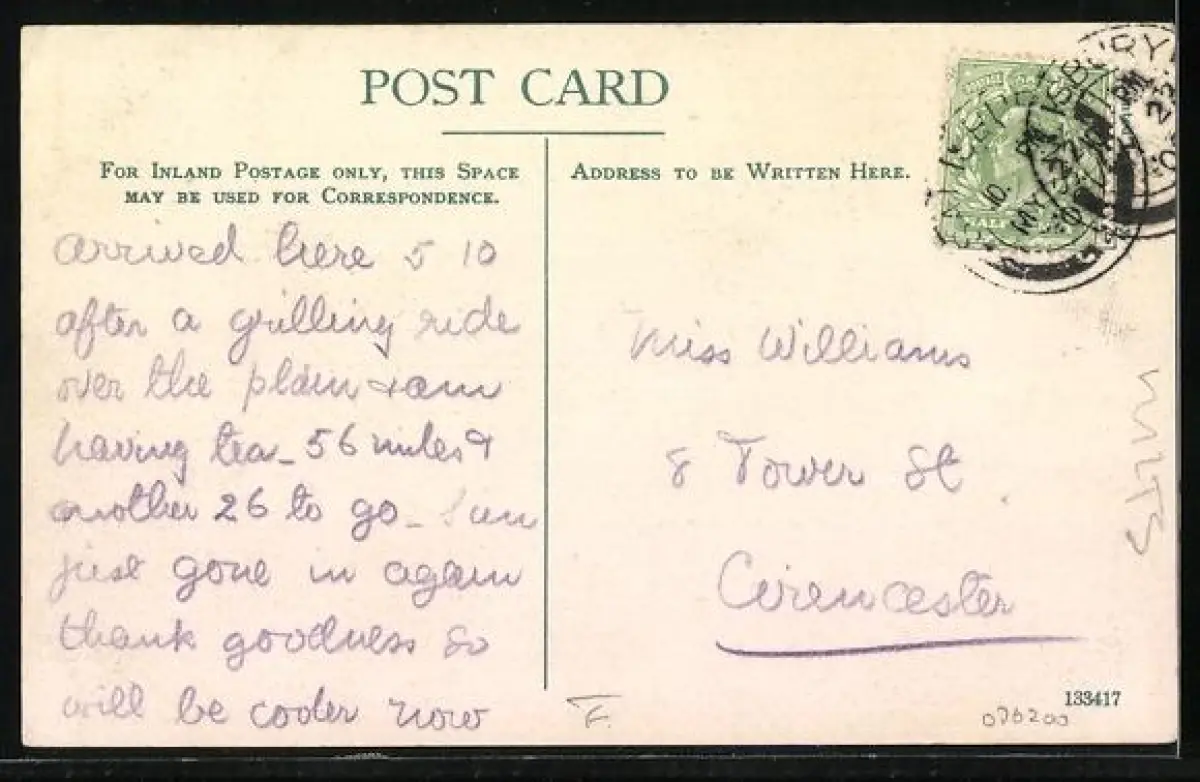 POST CARD
FOR INLAND POSTAGE ONLY, THIS SPACE
MAY BE USED FOR CORRESPONDENCE.
ADDRESS TO BE WRITTEN HERE.
arrived here 5 10
after a grilling ride
over the plain & am
having tea - 56 miles &
another 26 to go - Sun
just gone in again
thank goodness so
will be cooler now
Miss Williams
8 Tower St.
Cirencester
WILTS
F.
133417
076200
HALF
MY 22
10
PM